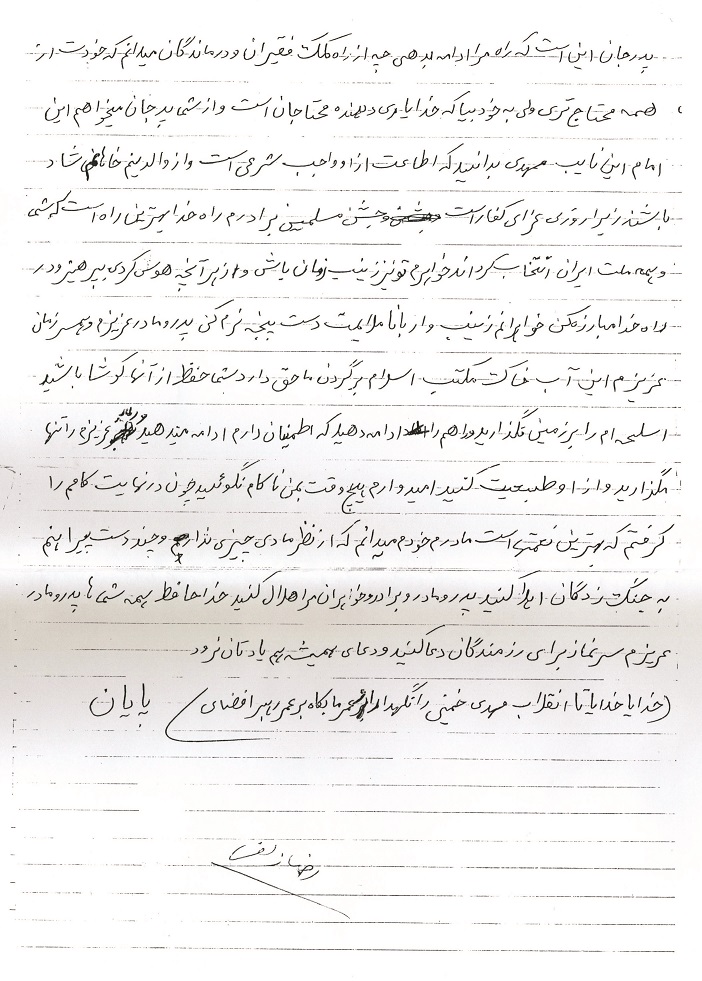 پدرجان این است که راه مرا ادامه بدهی چه از راه کمک فقیران و درماندگان میدانم که خودت از
همه محتاج تری ولی به خود بیا که خدا یاری دهنده محتاجان است و از شما پدر جان میخواهم این
امام این نایب مهدی بدانید که اطاعت از او واجب شرعی است و از والدینم خانه شاد
باشند زیرا روزی عزای کفار است و جشن مسلمین برادرم راه خدا بهترین راه است که شما
و همه ملت ایران انتخاب کرد اند خواهرم تو نیز زینب زمان باش و از هر آنچه هوس کردی بپرهیز و در
راه خدا مبارزه کن خواهرانم زینب وار با ناملایمت دست پنجه نرم کن پدر و مادر عزیزم و همسر زمان
عزیزم این آب خاک مکتب اسلام برگردن ما حق دارد شما حفظ از آنها کوشا باشید
اسلحه ام را بر زمین نگذارید و راهم را ادامه دهید که اطمینان دارم ادامه میدهید عزیزم را تنها
نگذارید و از او طبیعیت کنید امیدوارم هیچ وقت بمن ناکام نگوئید چون در نهایت کامم را
گرفتم که بهترین نعمتها است مادرم خودم میدانم که از نظر مادی چیزی ندارم و چند دست پیراهنم
به جنگ زدگان اهدا کنید پدر و مادر و برادر و خواهران مرا هلال کنید خداحافظ همه شما ها پدر و مادر
عزیزم سر نماز برای رزمندگان دعا کنید و دعای همیشه هم یادتان نرود
(خدایا خدایا تا انقلاب مهدی خمینی را نگهدار از عمر ما بکاه بر عمر رهبر افضای) پایان
رضا